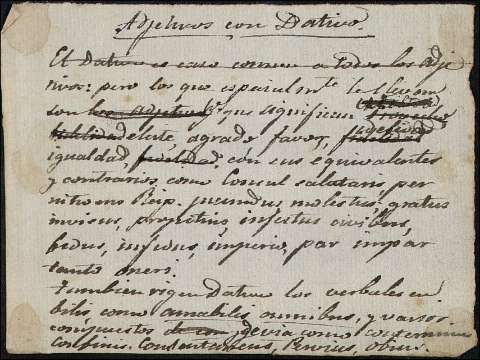 Adjetivos con Dativo.
El Dativo es caso comun a todos los Adje
tivos: pero los que especialmte le llevan
son los adjetivos que significan
deleite, agrado, favor, fidelidad
igualdad, fidelidad, con sus equivalentes
y contrarios, como Consul salutaris, per
nitiosus Reip. jucundus, molestus, gratus
invisus, propitius, infestus civibus,
fidus, infidus, imperio, par impar
tanto oneri.
Tambien rigen Dativo los verbales en
bilis, como amabilis omnibus, y varios
compuestos de con, devia como conterminus
Confinis, Consentaneus, Pervius, obvius